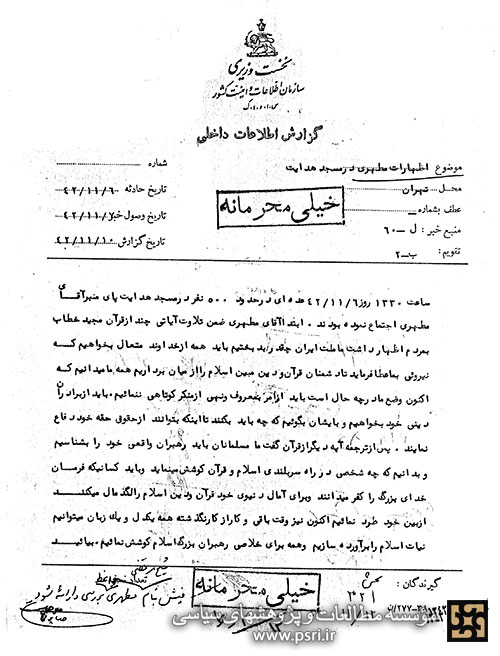 نخست وزیری
سازمان اطلاعات و امنیت کشور
س.ا.و.ا.ک
گزارش اطلاعات داخلی
موضوع اظهارات مطهری در مسجد هدایت
شماره
محل: تهران
تاریخ حادثه ۴۲/۱۱/۶
عطف بشماره
خیلی محرمانه
تاریخ وصول خبر ۴۲/۱۱/۷
منبع خبر: ل-۶۰۰
تاریخ گزارش ۴۲/۱۱/۱۰
تقویم: ب-۲
ساعت ۱۳۳۰ روز ۴۲/۱۱/۶ عده ای در حدود ۵۰۰ نفر در مسجد هدایت پای منبر آقای
مطهری اجتماع نموده بودند. ابتدا آقای مطهری ضمن تلاوت آیاتی چند از قرآن مجید خطاب
بمردم اظهار داشت ما ملت ایران چقدر بد بختیم باید همه از خداوند متعال بخواهیم که
نیروئی بما عطا فرماید تا دشمنان قرآن و دین مبین اسلام را از میان برداریم همه ما میدانیم که
اکنون وضع ما در چه حال است باید از امر بمعروف و نهی از منکر کوتاهی ننمائیم، باید از برادران
دینی خود بخواهیم و بایشان بگوئیم که چه باید بکنند تا اینکه بتوانند از حقوق حقه خود دفاع
نمایند. پس از ترجمه آیه دیگر از قرآن گفت ما مسلمانان باید رهبران واقعی خود را بشناسیم
و بدانیم که چه شخصی در راه سربلندی اسلام و قرآن کوشش مینماید و باید کسانیکه فرمان
خدای بزرگ را کفر میدانند و برای آمال دنیوی خود قرآن و دین اسلام را لگدمال میکنند
از بین خود طرد نمائیم اکنون نیز وقت باقی و کار از کار نگذشته همه یکدل و یک زبان میتوانیم
نیات اسلام را برآورده سازیم و همه برای خلاصی رهبران بزرگ اسلام کوشش نمائیم، بیائید
گیرندگان:
۳۲۱
خیلی محرمانه
فیش بنام مطهری بررسی و ارائه شود
مؤسسه مطالعات و پژوهشهای سیاسی
www.psri.ir